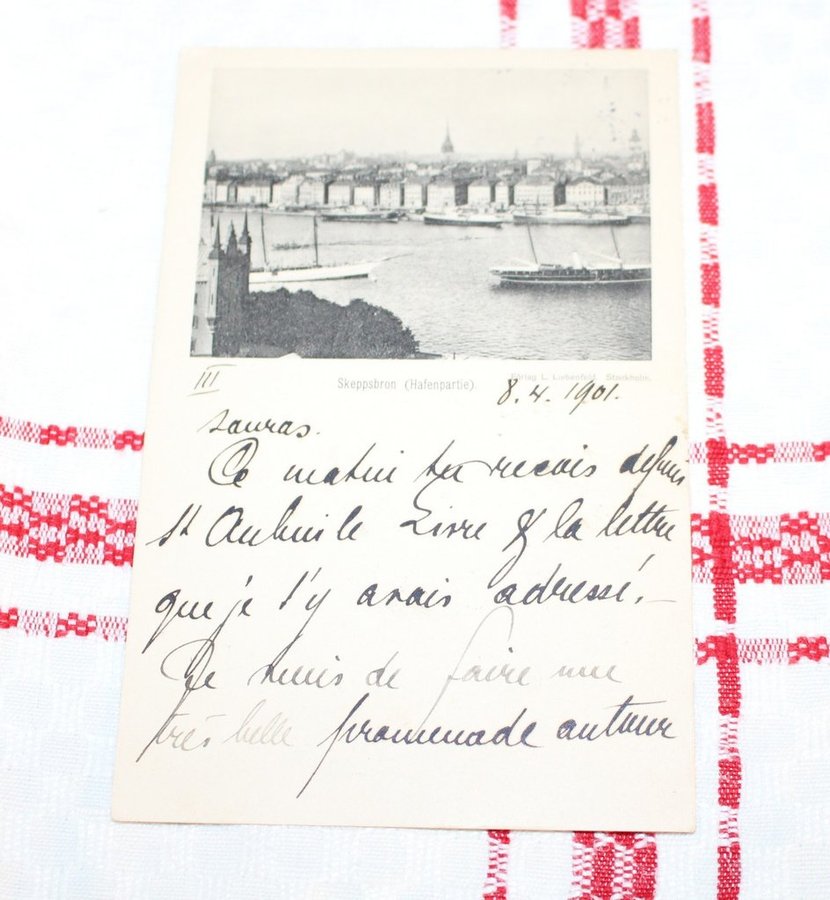 III
Skeppsbron (Hafenpartie).
Förlag L. Stockholm.
8.4.1901.
sauras.
Ce matin tu recois depuis
St Aubin le Livre & la lettre
que je t'y avais adressé. –
Je viens de faire une
très belle promenade autour